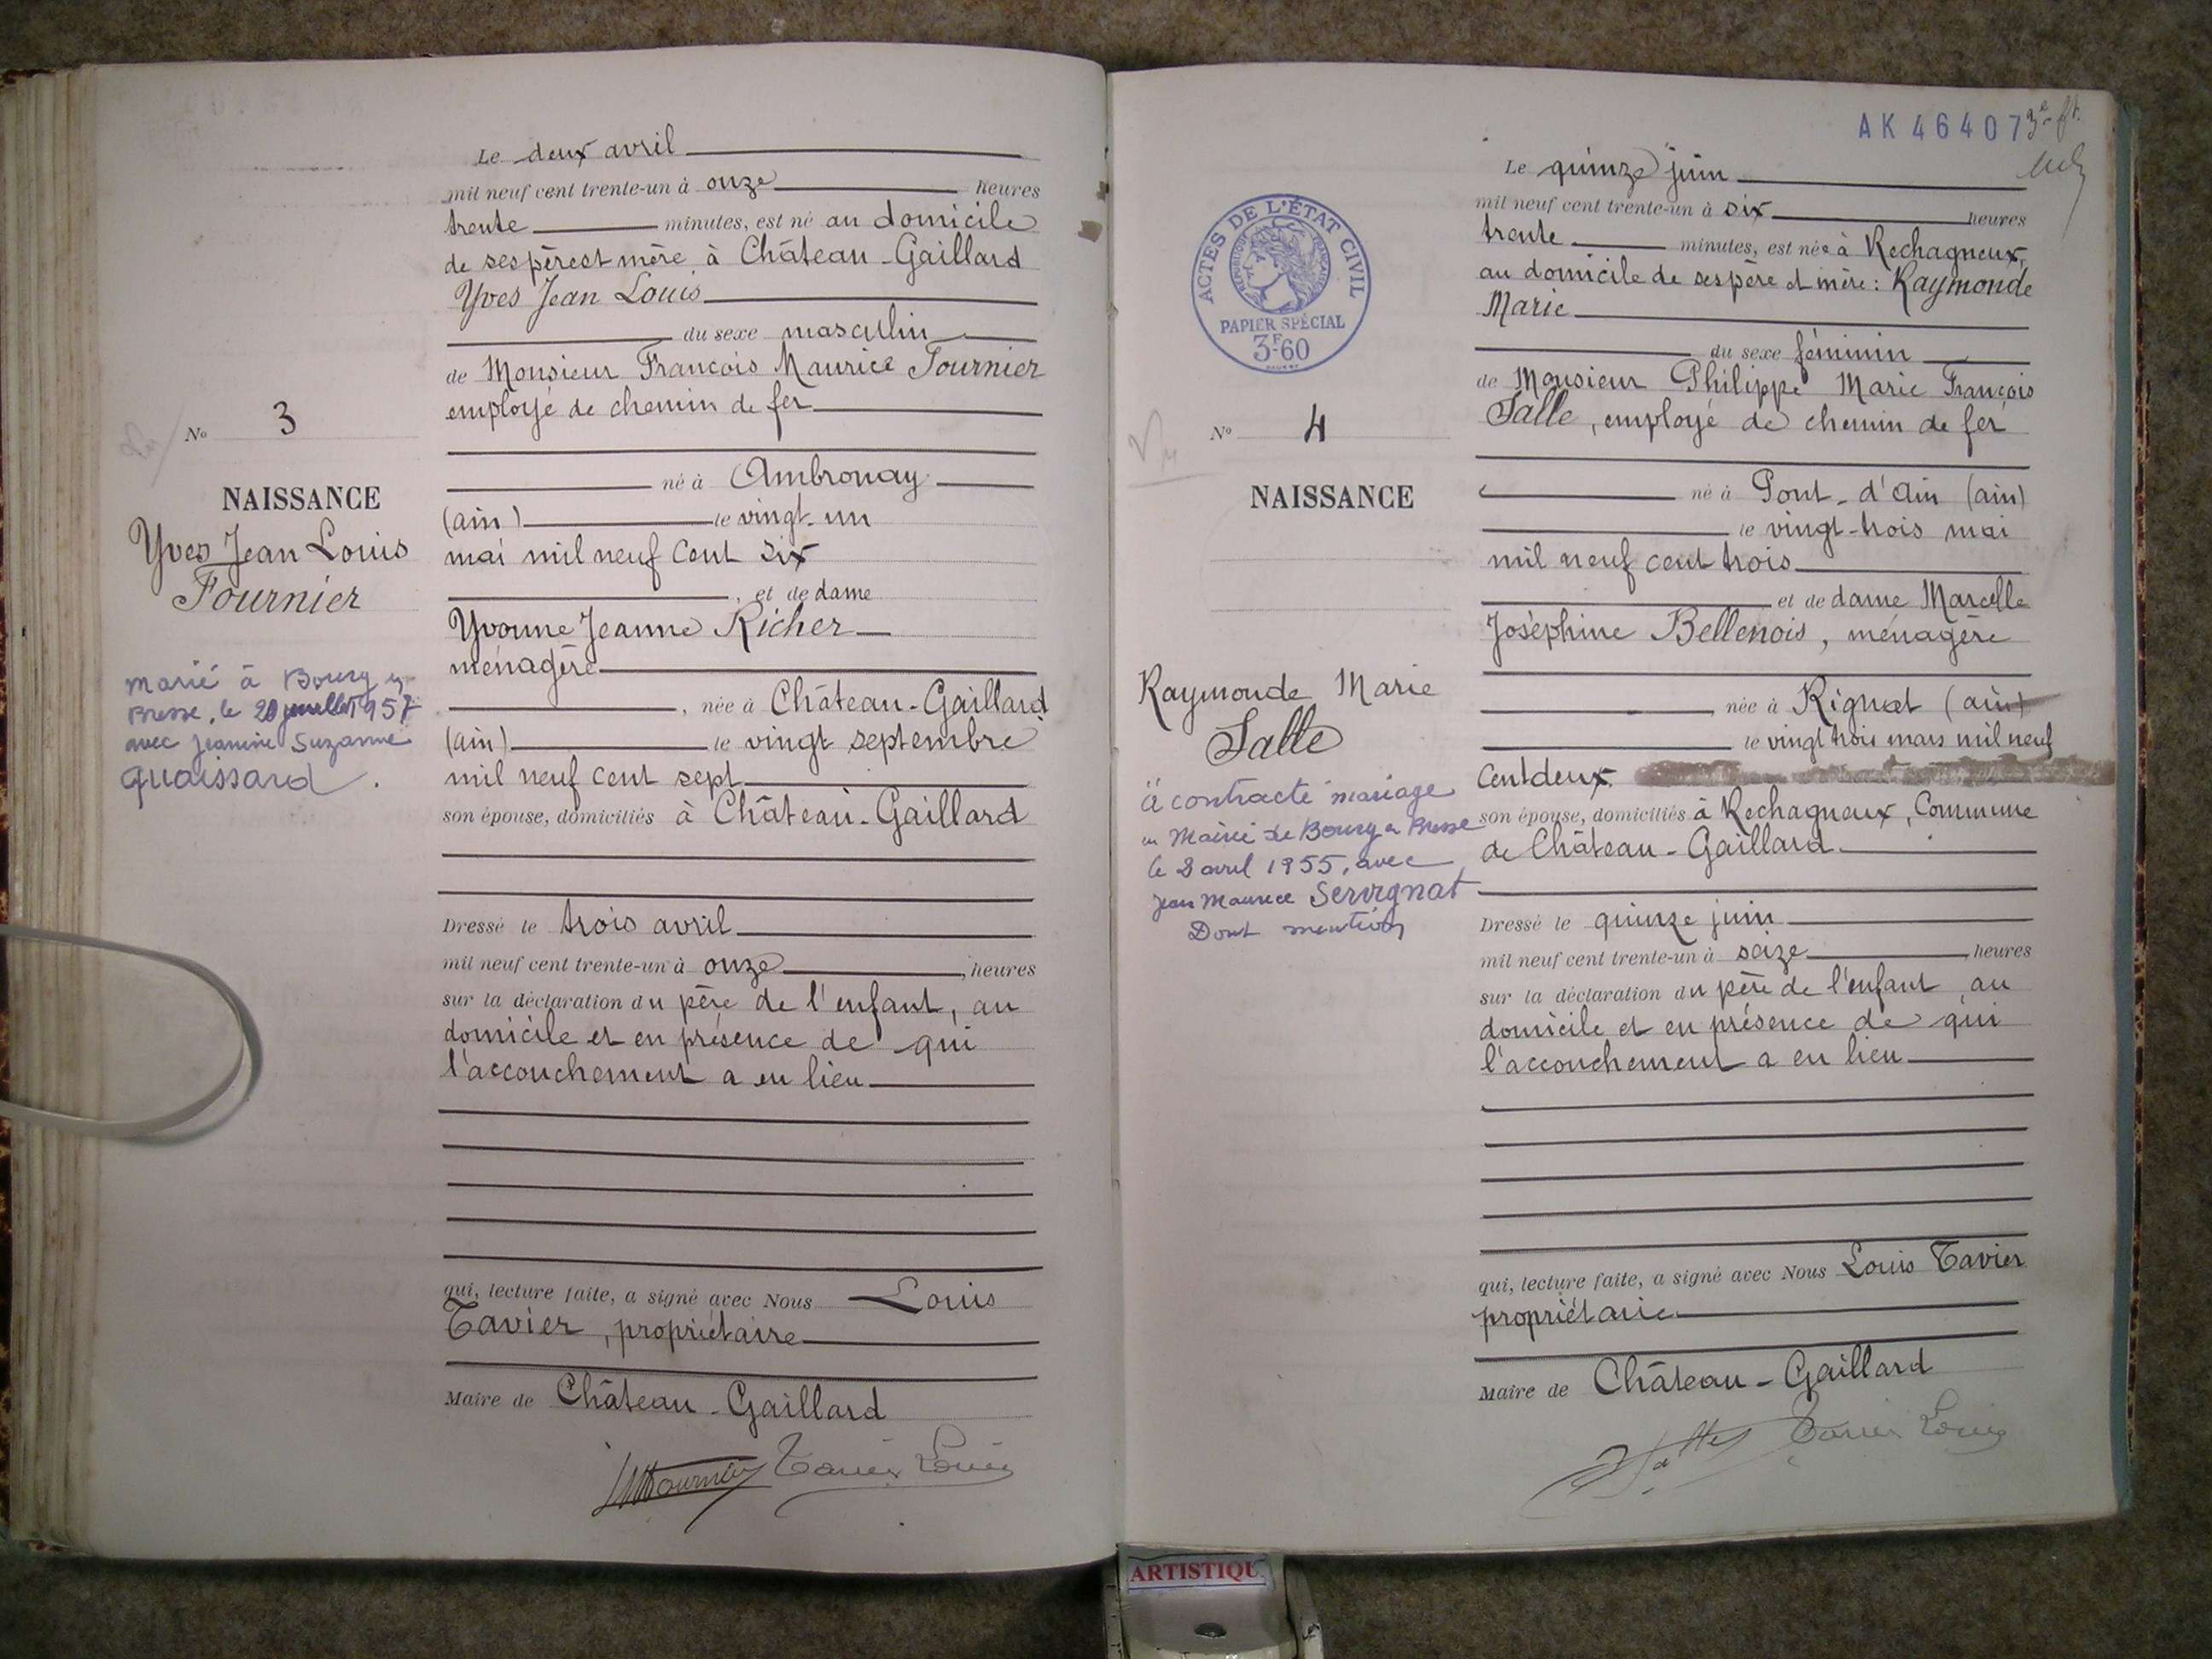 Le deux avril
mil neuf cent trente-un à onze heures
trente minutes, est né au domicile
de ses père et mère à Château-Gaillard
Yves Jean Louis
du sexe masculin
de Monsieur François Maurice Fournier
employé de chemin de fer
né à Ambronay
(ain) le vingt-un
mai mil neuf cent six
, et de dame
Yvonne Jeanne Richer
ménagère
, née à Château-Gaillard
(ain) le vingt septembre
mil neuf cent sept
son épouse, domiciliés à Château-Gaillard
Dressé le trois avril
mil neuf cent trente-un à onze, heures
sur la déclaration du père de l'enfant, au
domicile et en présence de qui
l'accouchement a eu lieu
qui, lecture faite, a signé avec Nous Louis
Tavier, propriétaire
Maire de Château-Gaillard
Tavier Louis
No 3
NAISSANCE
Yves Jean Louis
Fournier
marié à Bourg en
Bresse, le 20 juillet 1957
avec Jeanine Suzanne
Quaissard.
AK 46407
Le quinze juin
mil neuf cent trente-un à six heures
trente minutes, est née à Rechagneux,
au domicile de ses père et mère : Raymonde
Marie
du sexe féminin
de Monsieur Philippe Marie François
Salle, employé de chemin de fer
né à Pont-d'Ain (ain)
le vingt-trois mai
mil neuf cent trois
et de dame Marcelle
Joséphine Bellenois, ménagère
née à Rignat (ain)
le vingt trois mars mil neuf
cent deux.
son épouse, domiciliés à Rechagneux, Commune
de Château-Gaillard
Dressé le quinze juin
mil neuf cent trente-un à seize, heures
sur la déclaration du père de l'enfant, au
domicile et en présence de qui
l'accouchement a eu lieu
qui, lecture faite, a signé avec Nous Louis Tavier
propriétaire
Maire de Château-Gaillard
Tavier Louis
ACTES DE L'ÉTAT CIVIL
RÉPUBLIQUE FRANÇAISE
PAPIER SPÉCIAL
3F.60
No 4
NAISSANCE
Raymonde Marie
Salle
a contracté mariage
en Mairie de Bourg en Bresse
le 2 avril 1955, avec
Jean Maurice Servignat
Dont mention
ARTISTIQU